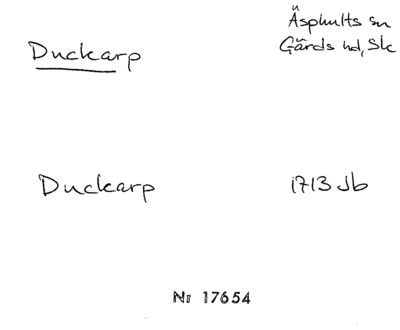 Duckarp
Äsphults sn
Gärds hd, Sk
Duckarp
1713 Jb
Nr 17654